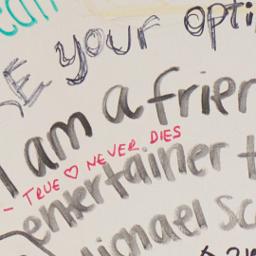 your opti
I am a frien
- TRUE ♡ NEVER DIES
entertainer t
Michael Sc